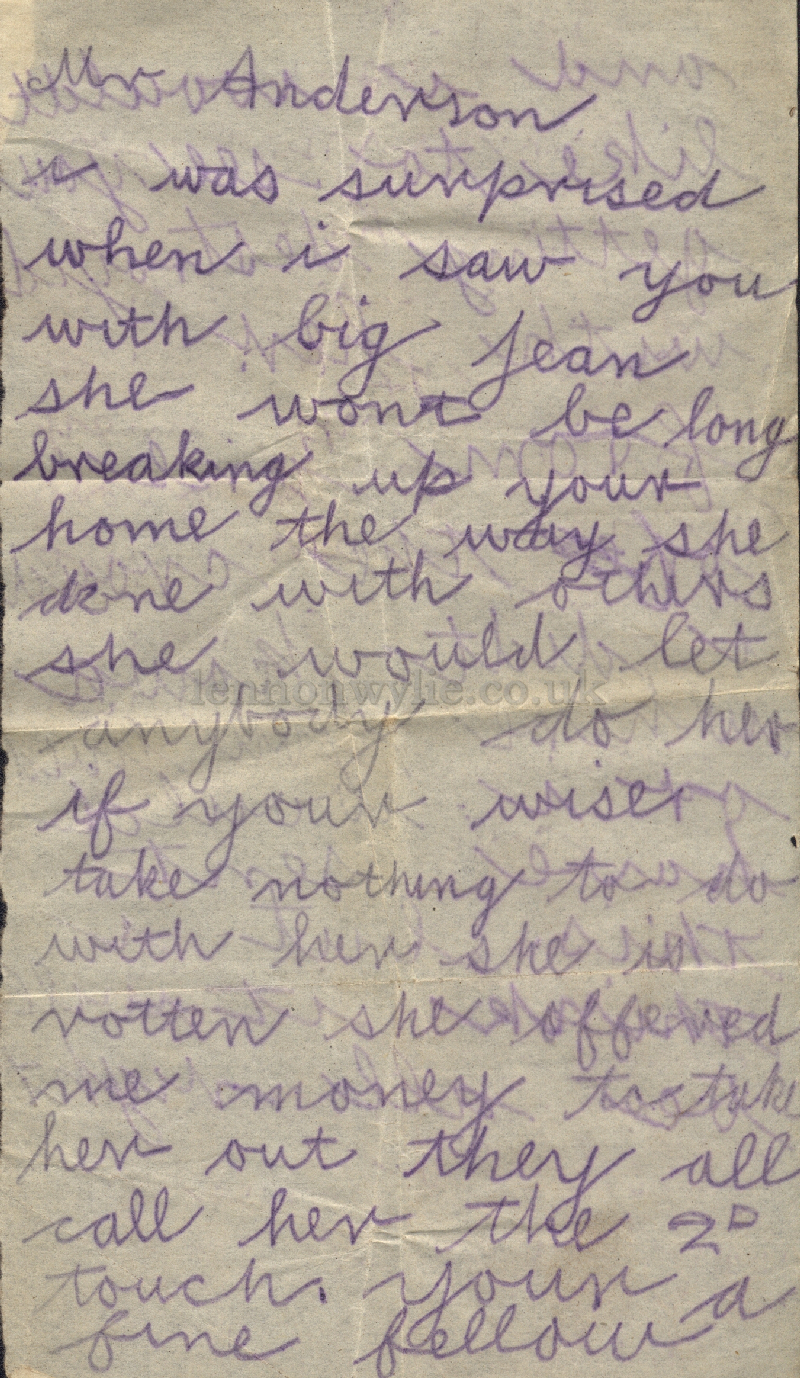 Mr Anderson
i was surprised
when i saw you
with big jean
she wont be long
breaking up your
home the way she
done with others
she would let
lennonwylie.co.uk
anybody do her
if your wise
take nothing to do
with her she is
rotten she offered
me money to take
her out they all
call her the 2D
touch. your a
fine fellow